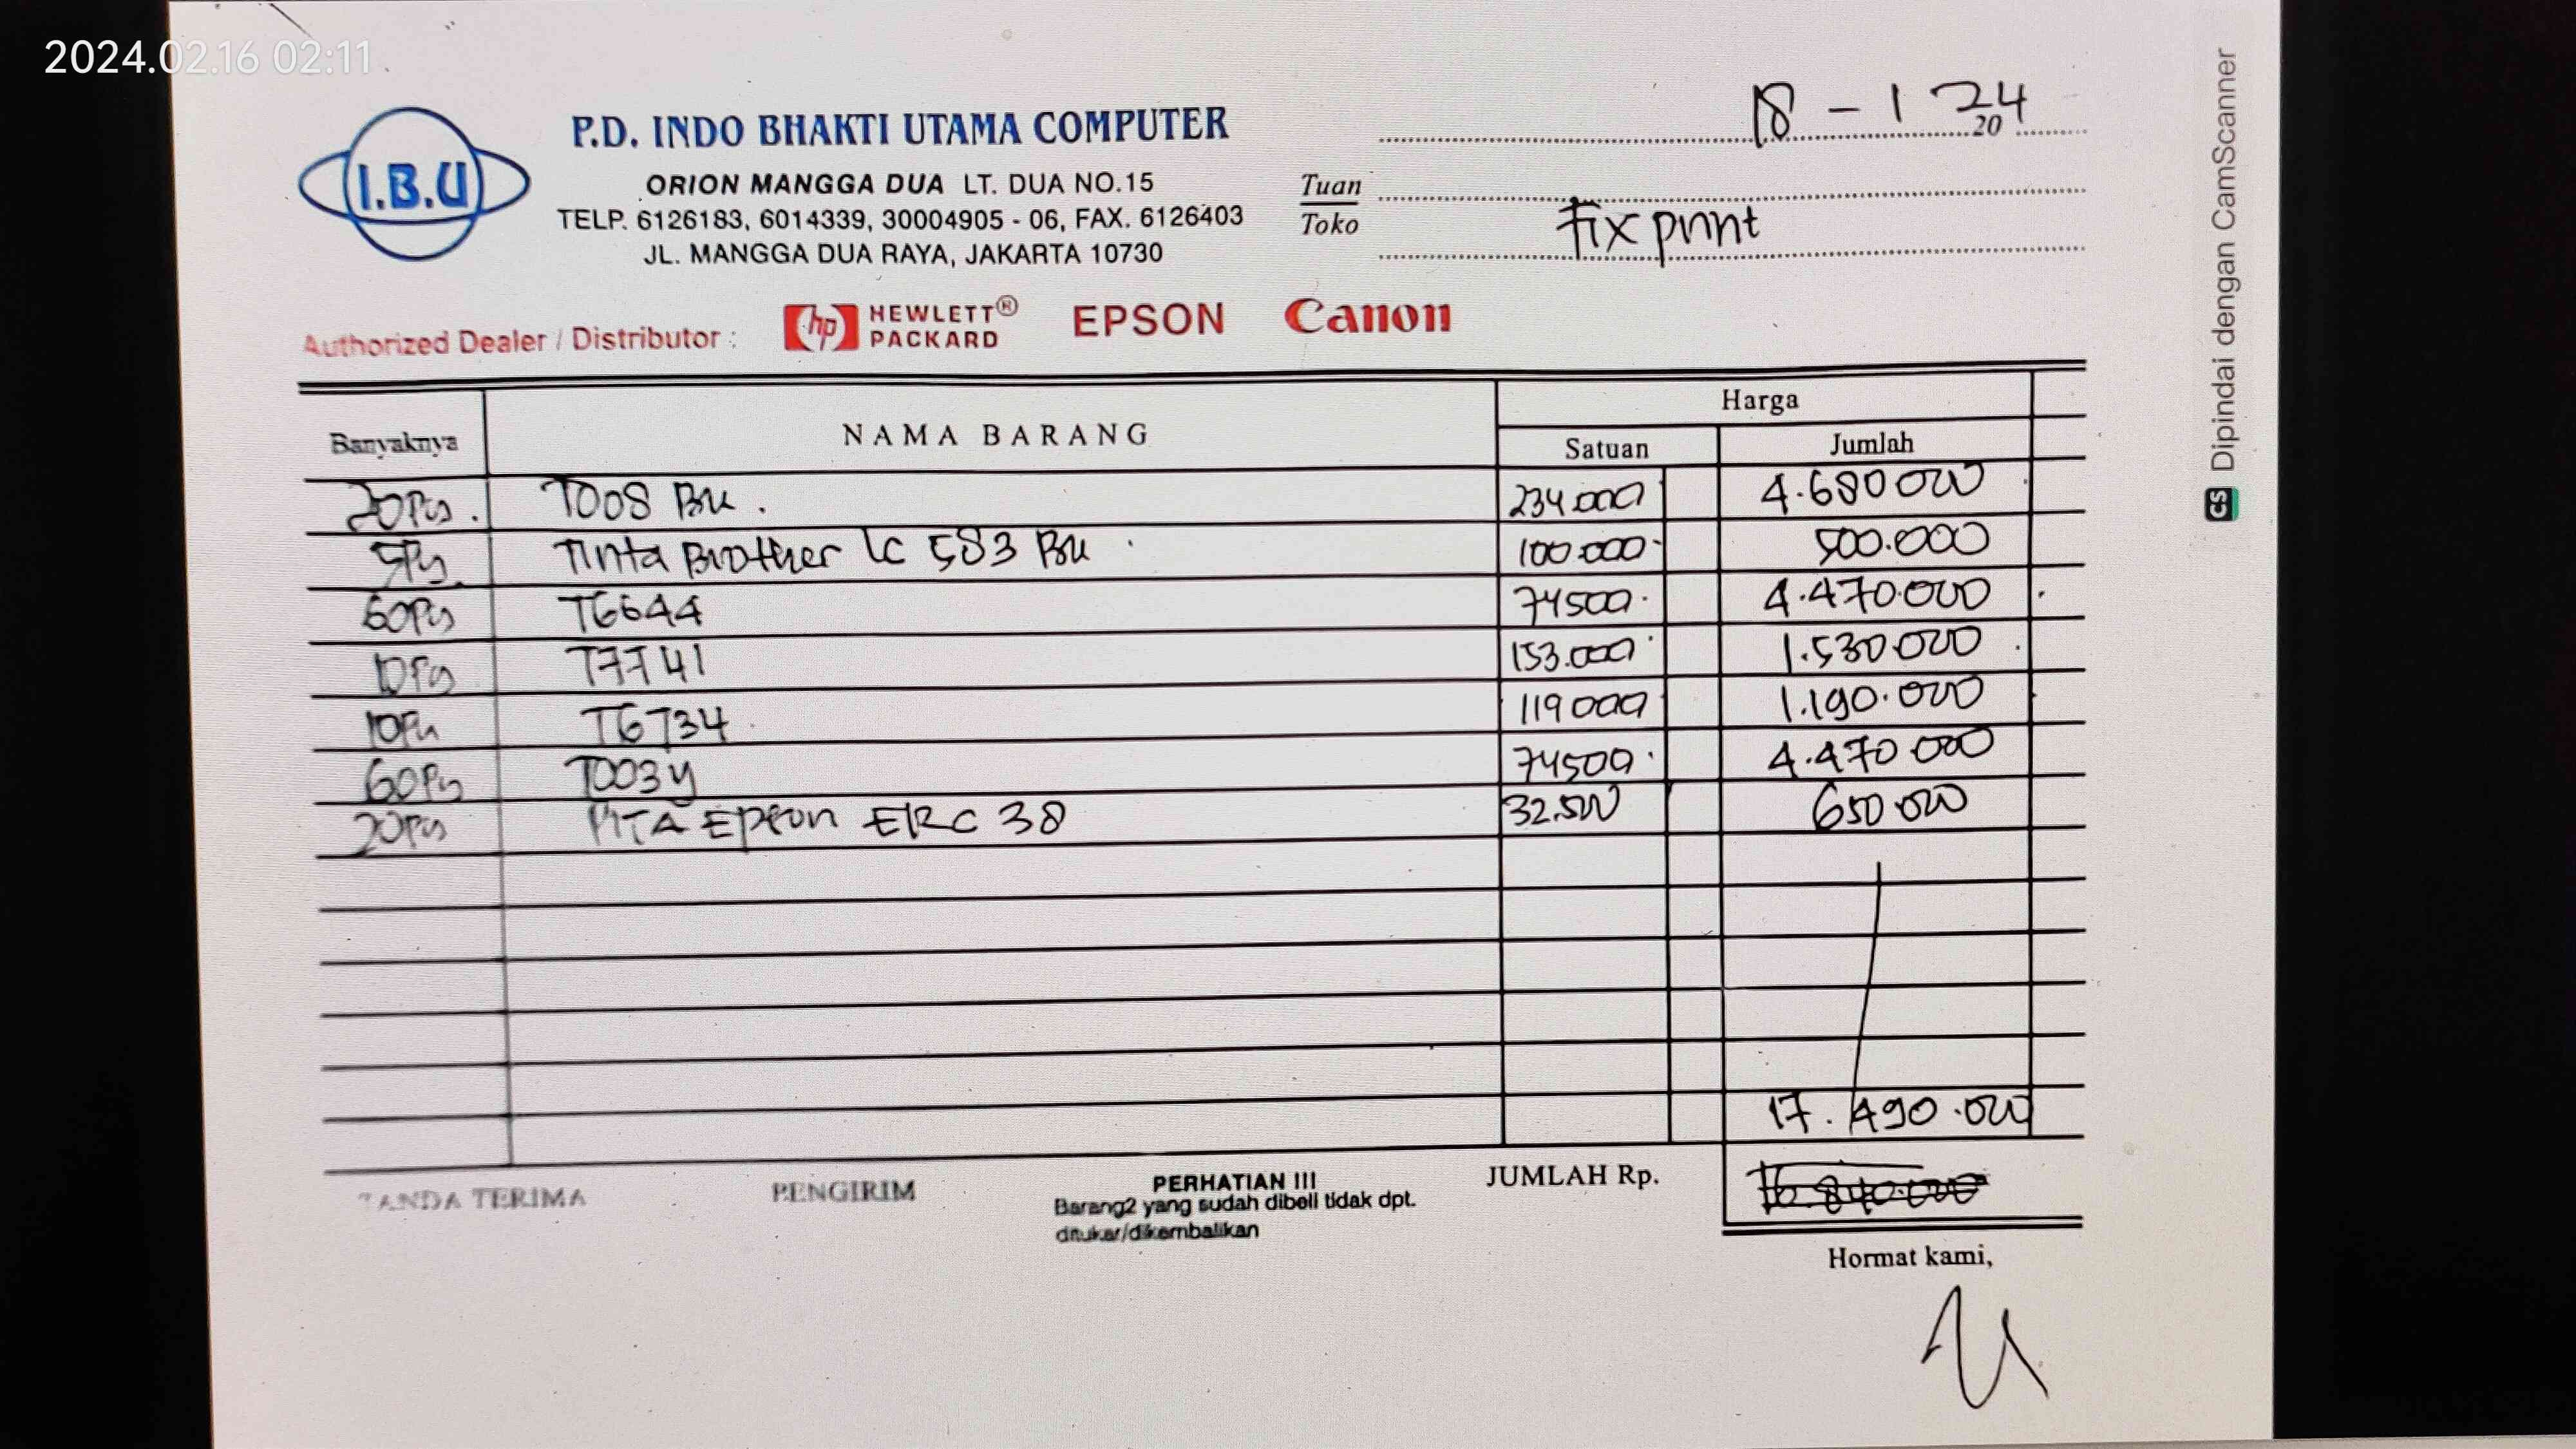 2024.02.16 02:11
I.B.U
P.D. INDO BHAKTI UTAMA COMPUTER
ORION MANGGA DUA LT. DUA NO.15
TELP. 6126183, 6014339, 30004905 - 06, FAX. 6126403
JL. MANGGA DUA RAYA, JAKARTA 10730
18 - 1 2024
Tuan
Toko
Fix print
Authorized Dealer / Distributor : hp HEWLETT® PACKARD EPSON Canon
Banyaknya NAMA BARANG Harga
Satuan Jumlah
20 Pcs. T008 BK. 234.000 4.680 000
5 Pcs. Tinta Brother LC 583 BK 100.000 500.000
60 Pcs T6644 74500 4.470.000
10 Pcs T7741 153.000 1.530.000
10 Pcs T6734 119 000 1.190.000
60 Pcs T003 y 74500 4.470 000
20 Pcs PITA Epson ERC 38 32.500 650.000
17.490.000
TANDA TERIMA PENGIRIM PERHATIAN III JUMLAH Rp.
Barang2 yang sudah dibeli tidak dpt.
ditukar/dikembalikan
Hormat kami,
CS Dipindai dengan CamScanner